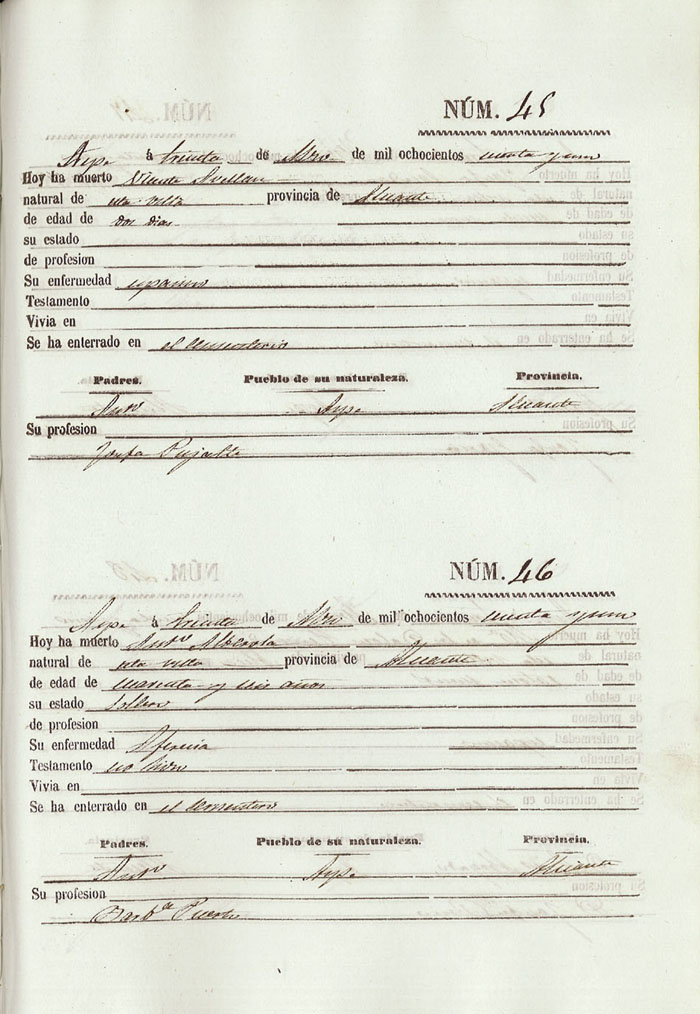 NÚM. 45
Aspe á treinta de Mzo de mil ochocientos cuenta y uno
Hoy ha muerto Vicente Avellan
natural de esta villa provincia de Alicante
de edad de dos dias
su estado
de profesion
Su enfermedad espasmo
Testamento
Vivia en
Se ha enterrado en el cementerio
Padres. Pueblo de su naturaleza. Provincia.
Antº Aspe Alicante
Su profesion
Josefa Pujalte
NÚM. 46
Aspe á treinta de Mzo de mil ochocientos cuenta y uno
Hoy ha muerto Antº
natural de esta villa provincia de Alicante
de edad de cuarenta y seis años
su estado Soltero
de profesion
Su enfermedad
Testamento no hizo
Vivia en
Se ha enterrado en el Cementerio
Padres. Pueblo de su naturaleza. Provincia.
Antº Aspe Alicante
Su profesion
Barbª Puerto